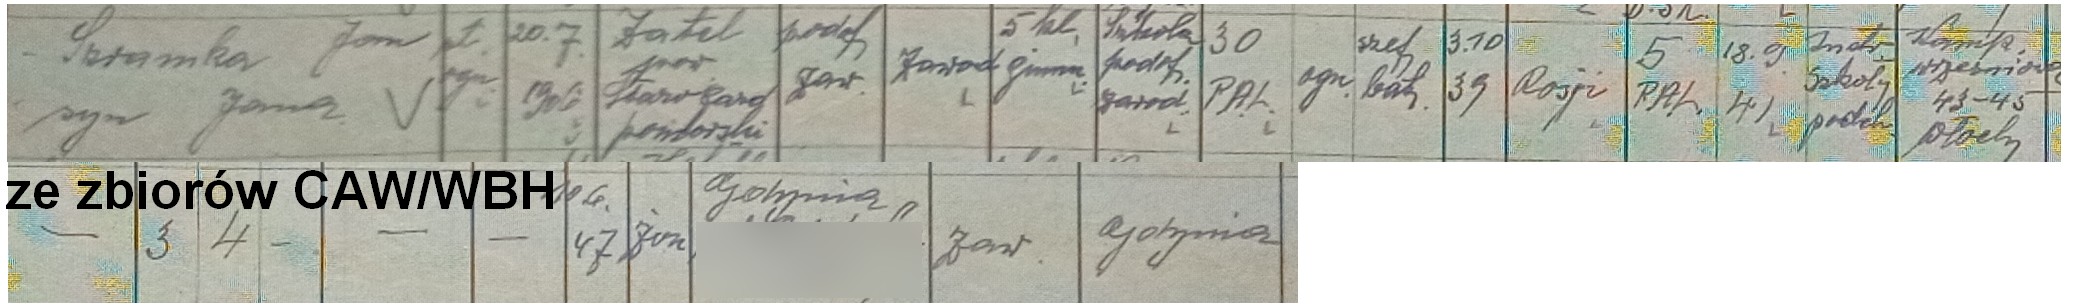 Szramka Jan pt. 20.7. Zatel podof. 5 kl. Szkoła 30 szef 3.10 5 18.9. Instr. Kamp.
syn Jana V ogn. 1906 por. zaw. Zawod gimn. podof. PAL. ogn. bat. 39 Rosji PAL. 41 Szkoły wrześniowa
Starogard zawod. podch. 43-45
pomorski Włochy
ze zbiorów CAW/WBH
— 3 4 - — — 47 żon. Gdynia zaw. Gdynia